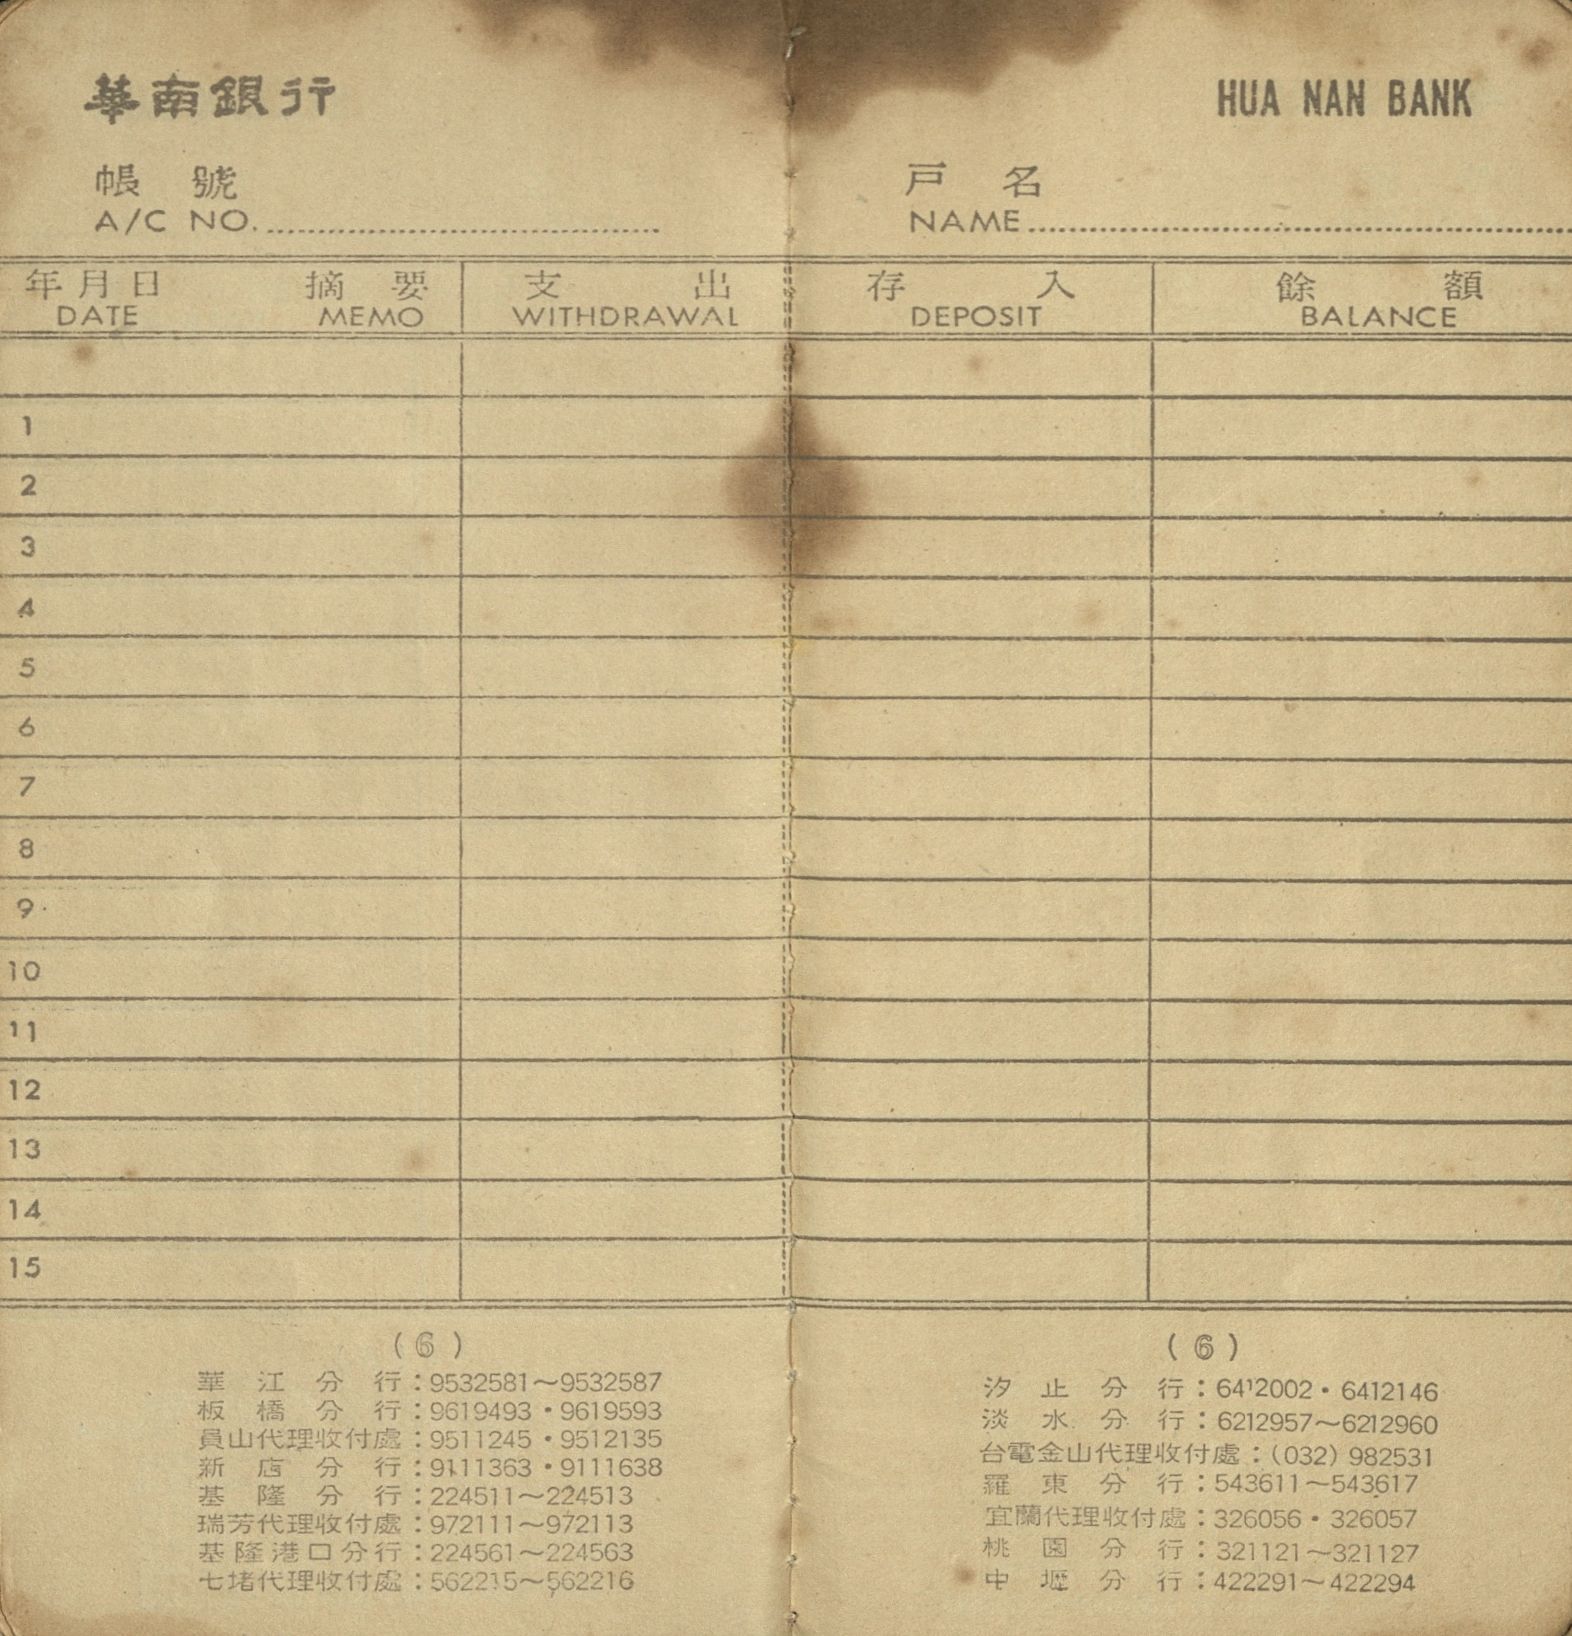 華南銀行 HUA NAN BANK
帳號 戸名
A/C NO. NAME
年月日 摘要 支出 存入 餘額
DATE MEMO WITHDRAWAL DEPOSIT BALANCE
1
2
3
4
5
6
7
8
9
10
11
12
13
14
15
(6)
華江分行:9532581~9532587
板橋分行:9619493・9619593
員山代理收付處:9511245・9512135
新店分行:9111363・9111638
基隆分行:224511~224513
瑞芳代理收付處:972111~972113
基隆港口分行:224561~224563
七堵代理收付處:562215~562216
(6)
汐止分行:6412002・6412146
淡水分行:6212957~6212960
台電金山代理收付處:(032) 982531
羅東分行:543611~543617
宜蘭代理收付處:326056・326057
桃園分行:321121~321127
中壢分行:422291~422294